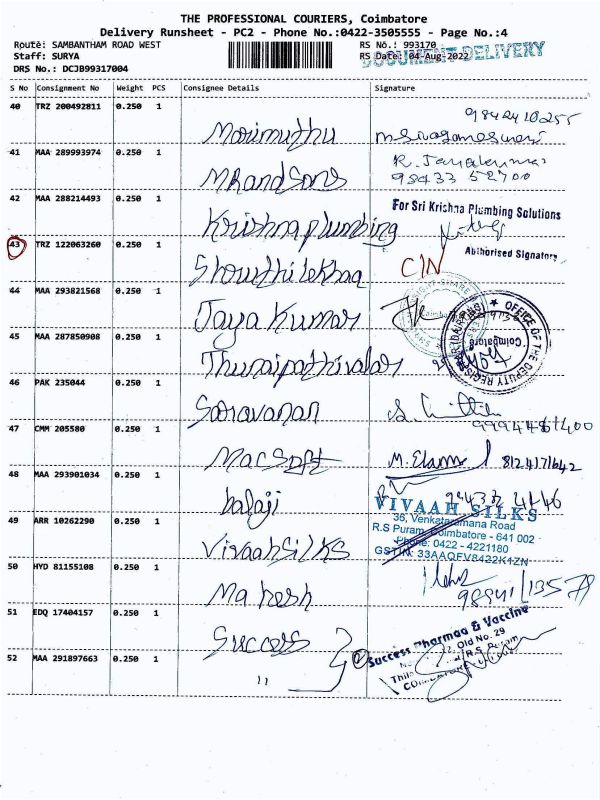 THE PROFESSIONAL COURIERS, Coimbatore
Delivery Runsheet - PC2 - Phone No.:0422-3505555 - Page No.:4
Route: SAMBANTHAM ROAD WEST
RS No.: 993170
Staff: SURYA
RS Date: 04-Aug-2022
DOCUMENT DELIVERY
DRS No.: DCJB99317004
S No Consignment No Weight PCS Consignee Details Signature
40 TRZ 200492811 0.250 1
9842410255
Marimuthu
41 MAA 289993974 0.250 1
98433 52700
MRandSons
42 MAA 288214493 0.250 1
For Sri Krishna Plumbing Solutions
Krishna plumbing
43 TRZ 122063260 0.250 1
Authorised Signatory
CIN
44 MAA 293821568 0.250 1
Jaya Kumar
45 MAA 287850908 0.250 1
OFFICE OF THE DEPUTY
Coimbatore
46 PAK 235044 0.250 1
Saravanan
47 CMM 205580 0.250 1
Macsoft
M. Elam 8124171642
48 MAA 293901034 0.250 1
balaji
VIVAAH SILKS
49 ARR 10262290 0.250 1
36, Venkataramana Road
R.S Puram, Coimbatore - 641 002
Phone: 0422 - 4221180
GSTIN: 33AAQFV8422K1ZN
VivaahSilks
50 HYD 81155108 0.250 1
Mahesh
51 EDQ 17404157 0.250 1
Success
Success Pharmaa & Vaccine
Old No. 29
R.S. Puram
52 MAA 291897663 0.250 1
"